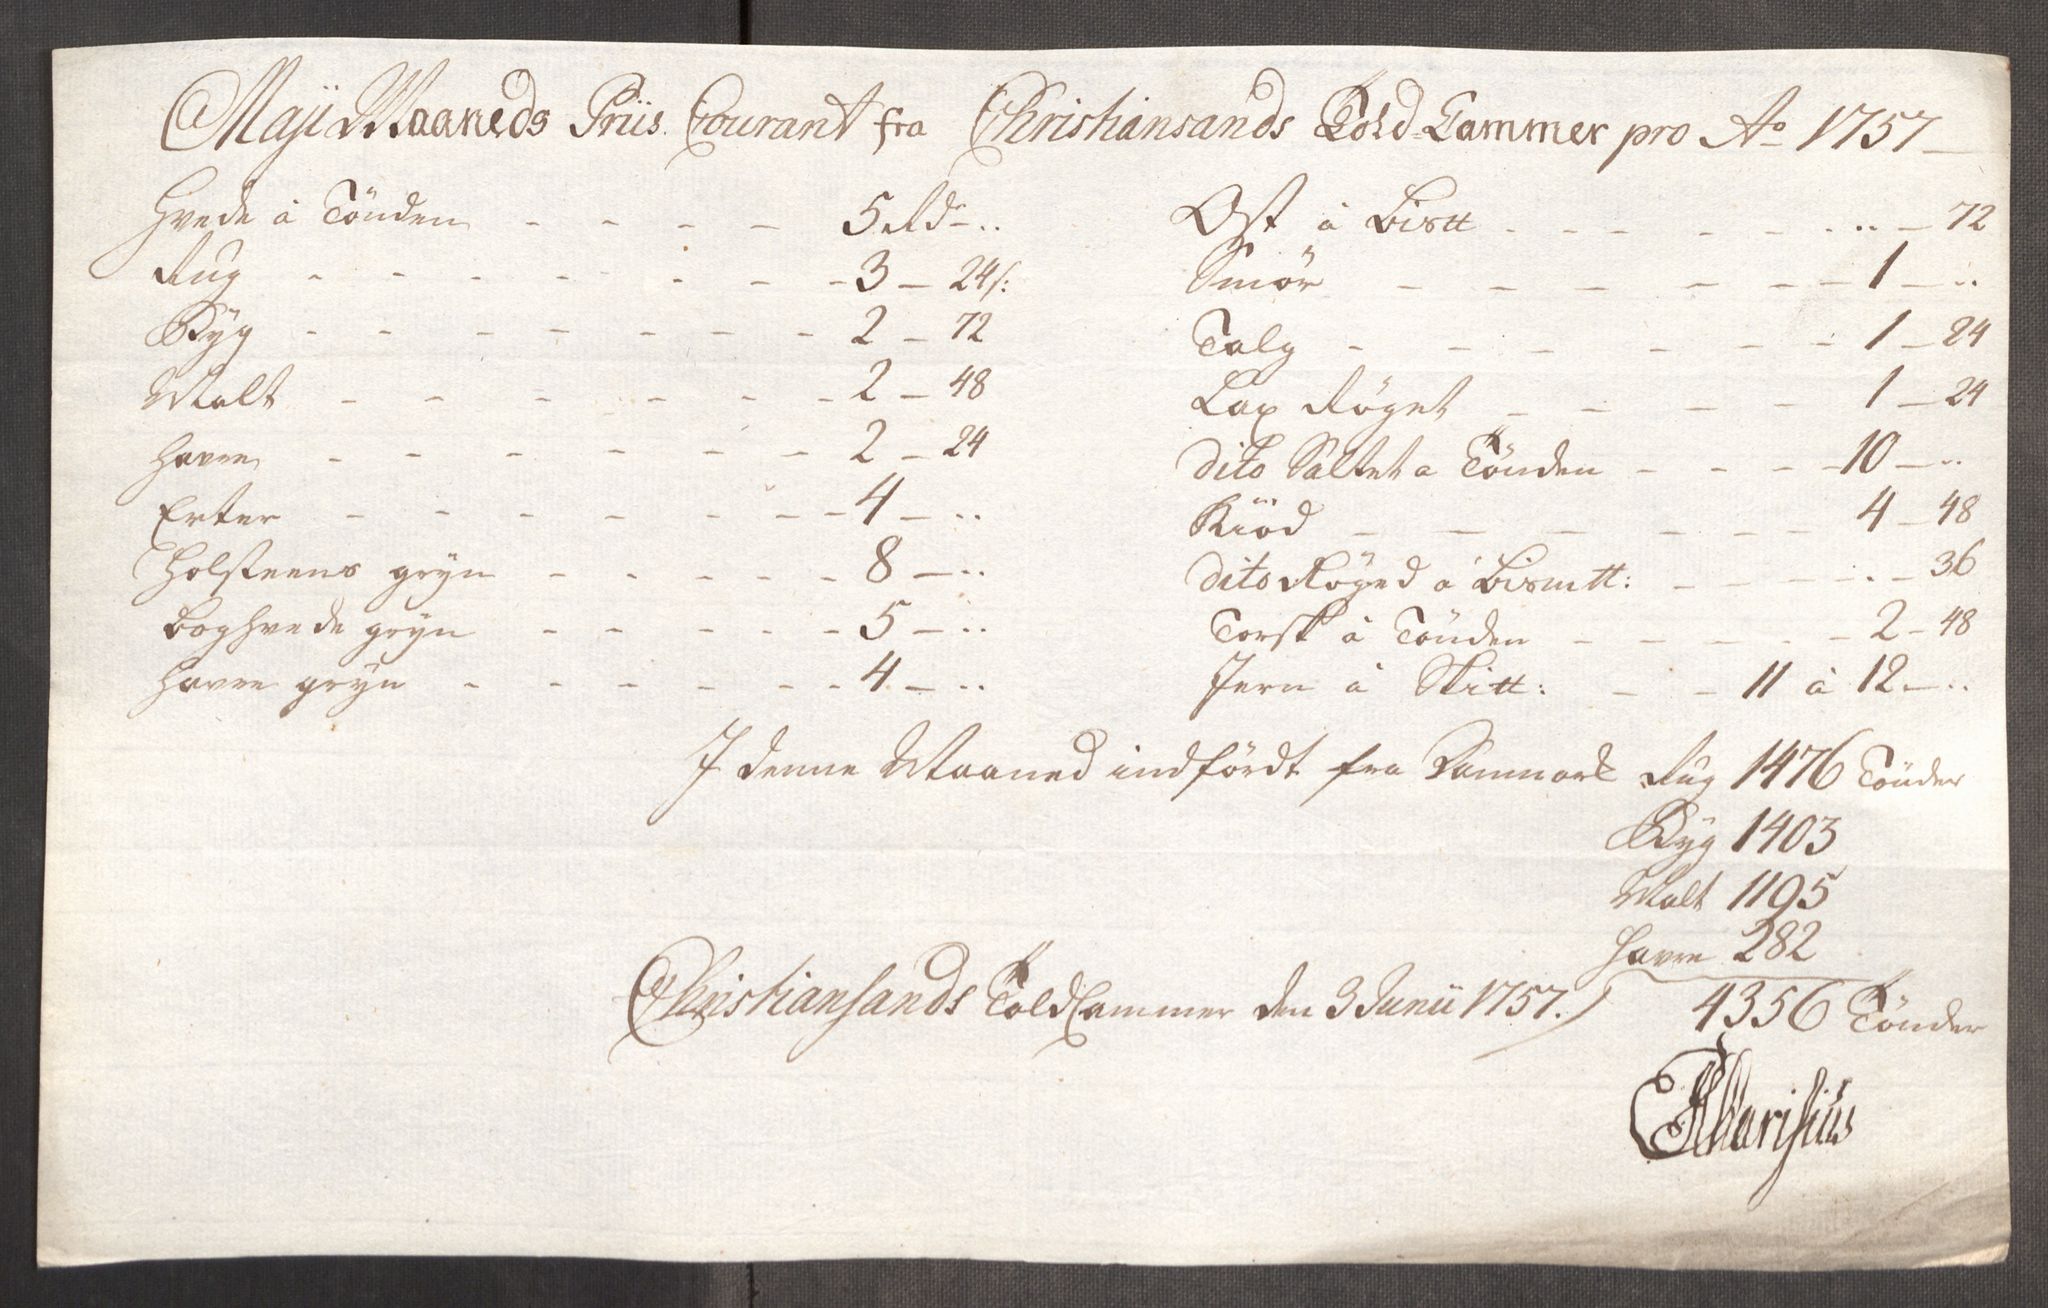 Maji Maaneds Priis Courant fra Christiansands Told-Cammer pro Ao 1757
Hvede à Tönden 5 Rd - ..
Rug 3 - 24 s:
Byg 2 - 72
Malt 2 - 48
Havre 2 - 24
Erter 4 - ..
Holsteens gryn 8 - ..
Boghvede gryn 5 - ..
Havre gryn 4 - ..
Ost à Bistt .. - 72
Smör 1 - ..
Talg 1 - 24
Lax Röget 1 - 24
Dito Saltet a Tönden 10 - ..
Kiöd 4 - 48
Dito Röged à Bismtt: .. - 36
Torsk à Tönden 2 - 48
Jern à Skitt: 11 à 12 - ..
I denne Maaned indfördt fra Danmark Rug 1476 Tönder
Byg 1403
Malt 1195
Havre 282
4356 Tönder
Christiansands ToldCammer den 3 Junii 1757.